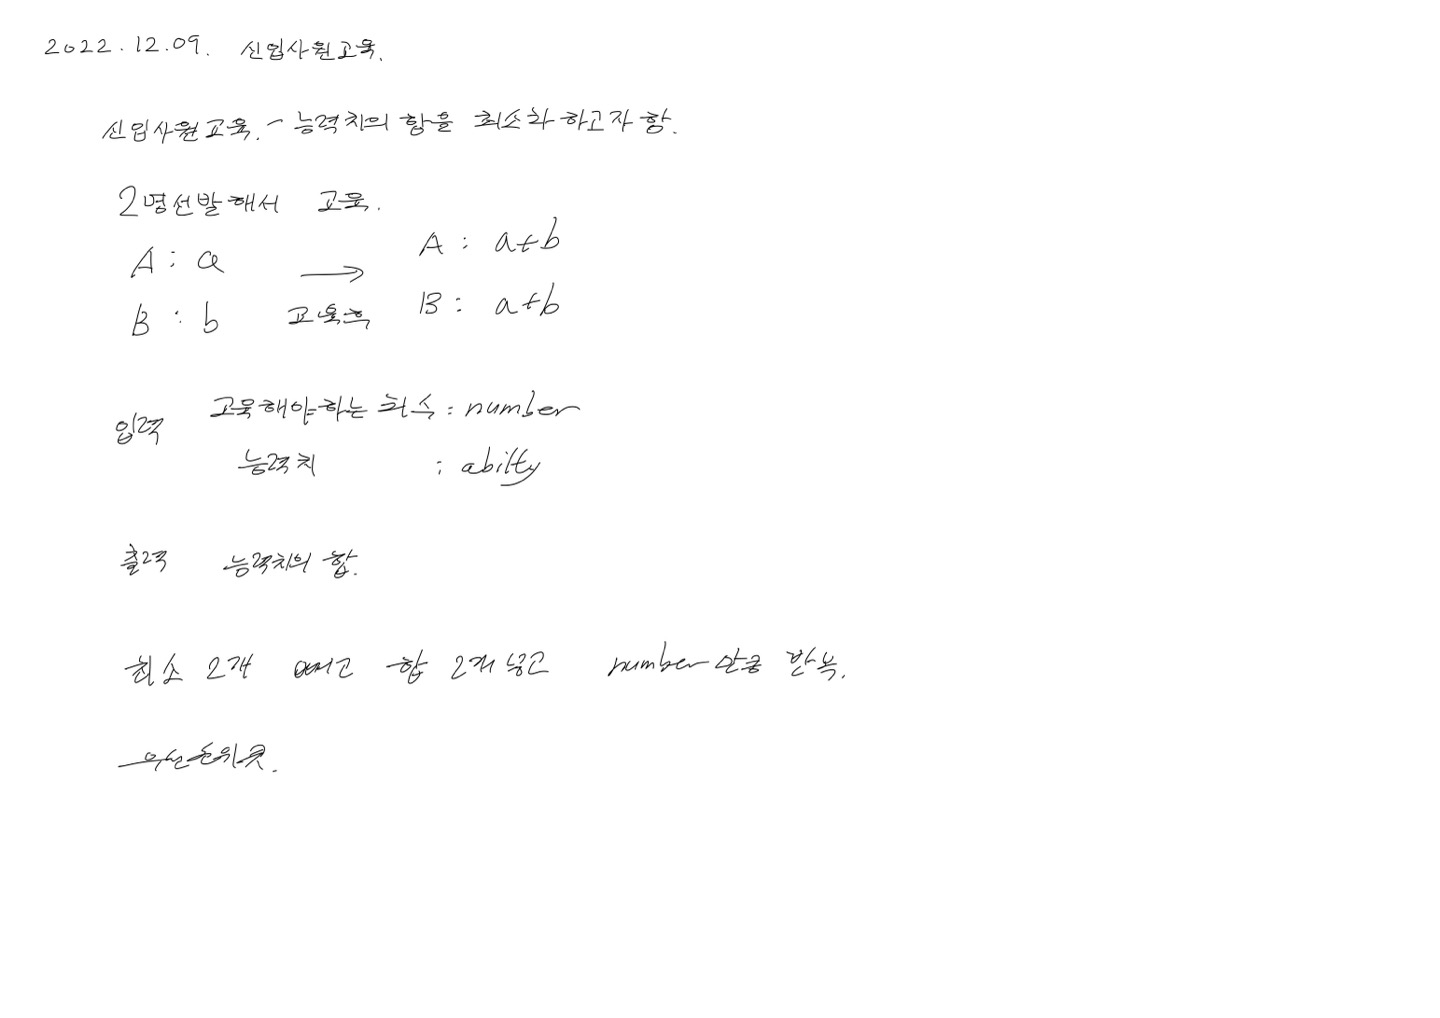 2022.12.09. 신입사원교육.
신입사원교육. - 능력치의 합을 최소화 하고자 함.
2명선발해서 교육.
A : a → A : a+b
B : b 교육후 B : a+b
입력 교육해야하는 회수 : number
능력치 : abilty
출력 능력치의 합.
최소 2개 빼고 합 2개 넣고 number만큼 반복.
우선순위큐.